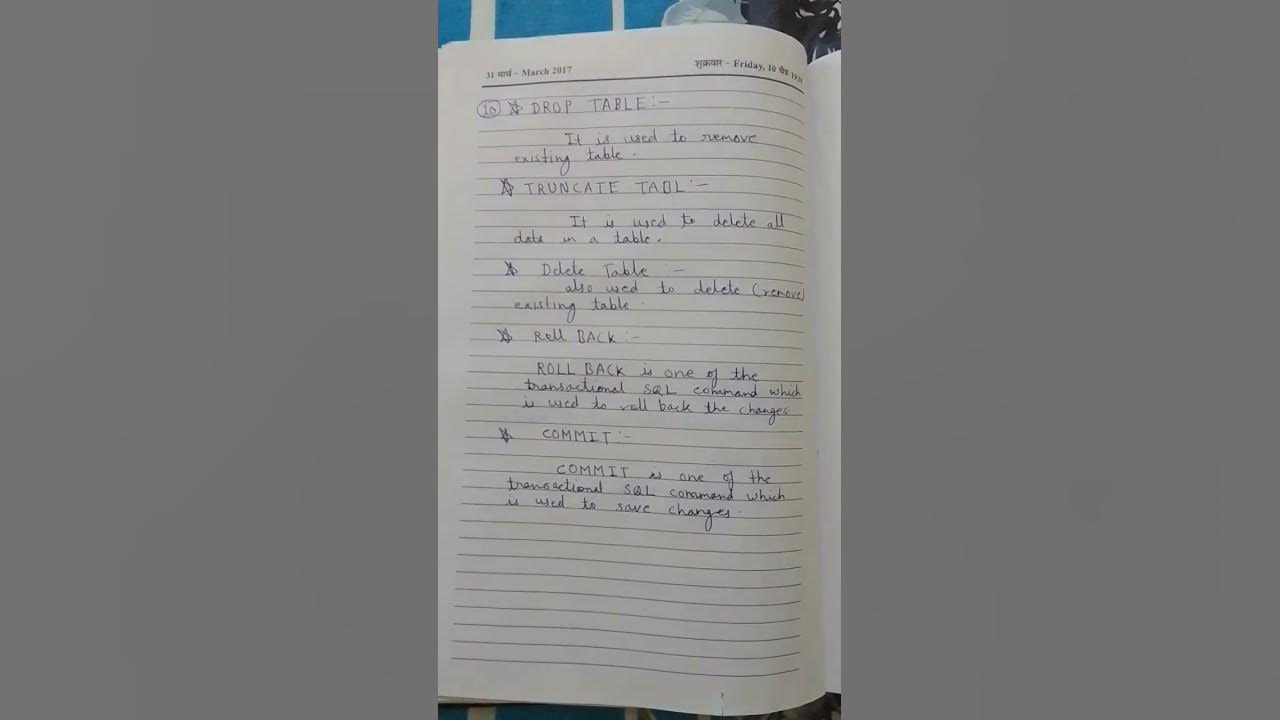 31 मार्च - March 2017
शुक्रवार - Friday, 10 चैत्र 1939
10 DROP TABLE:-
It is used to remove
existing table.
TRUNCATE TABL:-
It is used to delete all
data in a table.
Delete Table :-
also used to delete (remove)
existing table.
Roll BACK:-
ROLL BACK is one of the
transactional SQL command which
is used to roll back the changes
COMMIT:-
COMMIT is one of the
transactional SQL command which
is used to save changes.